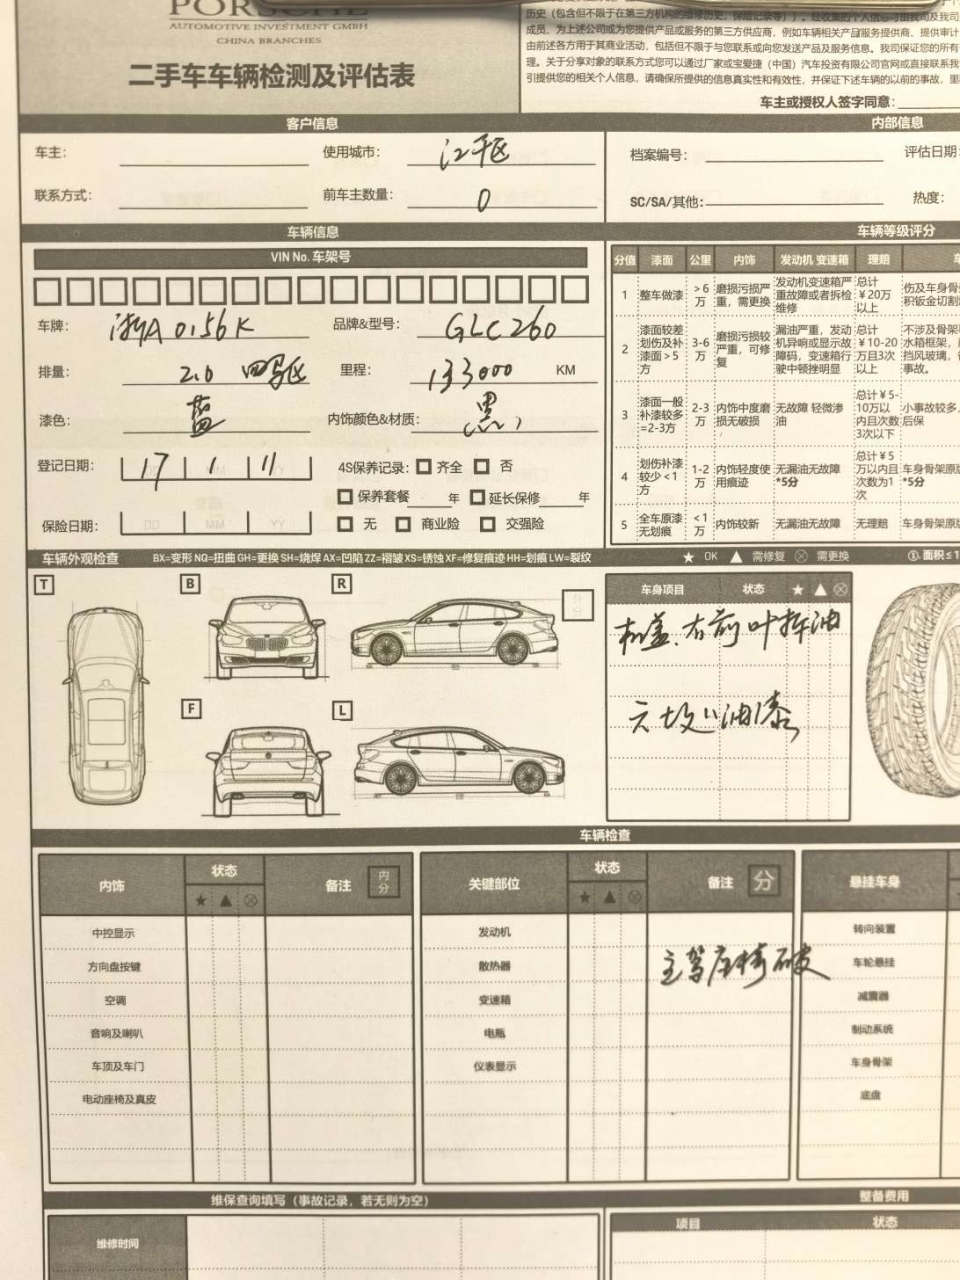 PORSCHE
AUTOMOTIVE INVESTMENT GMBH
CHINA BRANCHES
二手车车辆检测及评估表
历史（包含但不限于在第三方机构的维修历史，保险记录等））。
成员，为上述公司或为您提供产品或服务的第三方供应商，例如车辆相关产品服务提供商、提供审计
由前述各方用于其商业活动，包括但不限于与您联系或向您发送产品及服务信息。我司保证您的所有
理。关于分享对象的联系方式您可以通过厂家或宝爱捷（中国）汽车投资有限公司官网或直接联系我
引提供您的相关个人信息，请确保所提供的信息真实性和有效性，并保证下述车辆的以前的事故，里
车主或授权人签字同意：
客户信息
内部信息
车主：
使用城市： 江干区
档案编号：
评估日期：
联系方式：
前车主数量： 0
SC/SA/其他：
热度：
车辆信息
车辆等级评分
VIN No. 车架号
车牌： 浙A 0156K
品牌&型号： GLC260
排量： 2.0 四驱
里程： 133000 KM
漆色： 蓝
内饰颜色&材质： 黑
登记日期： 17 1 11
4S保养记录： 齐全 否
保养套餐 年 延长保修 年
保险日期： DD MM YY
无 商业险 交强险
分值 漆面 公里 内饰 发动机 变速箱 理赔
1 整车做漆 >6万 磨损污损严重，需更换 发动机变速箱严重故障或者拆检维修 总计￥20万以上 伤及车身骨
2 漆面较差划伤及补漆面>5方 3-6万 磨损污损较严重，可修复 漏油严重，发动机异响或显示故障码，变速箱行驶中顿挫明显 总计￥10-20万且3次以上 不涉及骨架 水箱框架， 挡风玻璃， 事故。
3 漆面一般补漆较多=2-3方 2-3万 内饰中度磨损无破损 无故障 轻微渗油 总计￥5-10万以内且次数3次以下 小事故较多， 后保
4 划伤补漆较少<1方 1-2万 内饰轻度使用痕迹 无漏油无故障 *5分 总计￥5万以内且次数为1次 车身骨架原版 *5分
5 全车原漆无划痕 <1万 内饰较新 无漏油无故障 无理赔 车身骨架原版
车辆外观检查 BX=变形 NQ=扭曲 GH=更换 SH=烧焊 AX=凹陷 ZZ=褶皱 XS=锈蚀 XF=修复痕迹 HH=划痕 LW=裂纹 ★ OK ▲ 需修复 ⊗ 需更换 ①. 面积≤1
T B R F L
车身项目 状态 ★ ▲ ⊗
机盖、右前叶掉油
油漆
车辆检查
内饰 状态 ★ ▲ ⊗ 备注 内分
关键部位 状态 ★ ▲ ⊗ 备注 分
悬挂车身
中控显示 发动机 转向装置
方向盘按键 散热器 主驾座椅破 车轮悬挂
空调 变速箱 减震器
音响及喇叭 电瓶 制动系统
车顶及车门 仪表显示 车身骨架
电动座椅及真皮 底盘
维保查询填写（事故记录，若无则为空）
整备费用
维修时间
项目 状态